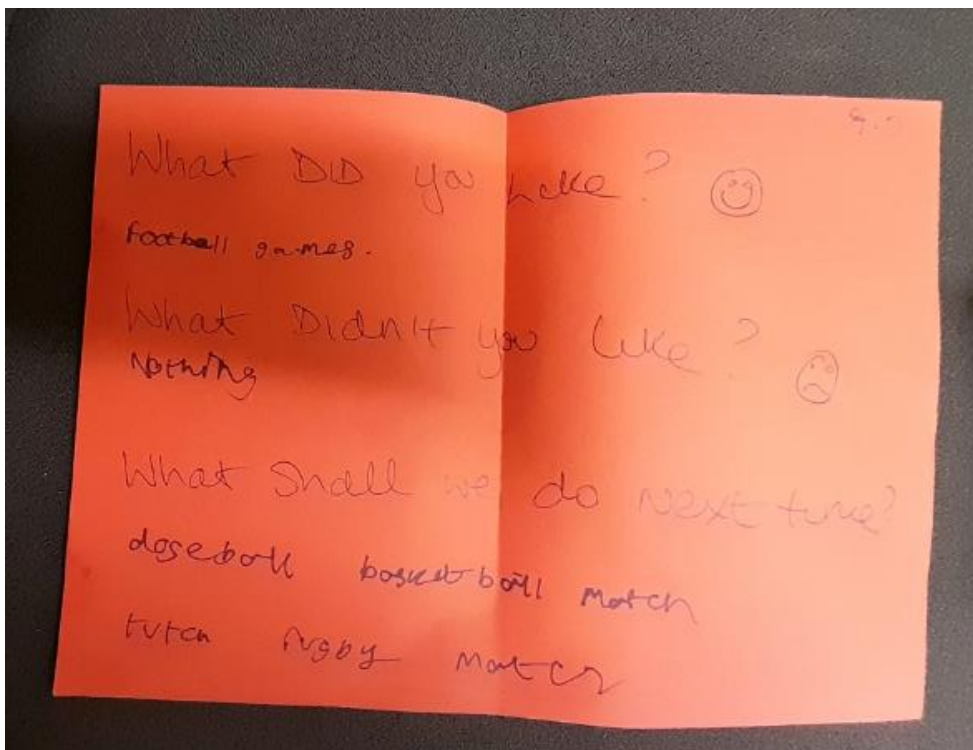 What DID you Like?
Football games.
What Didn't you Like?
Nothing
What Shall we do Next time?
dogeball basketball match
tutch rugby match